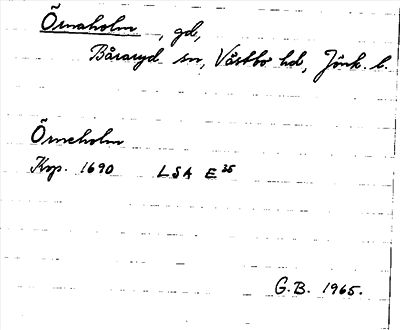 Örnaholm, gd,
Båraryd sn, Västbo hd, Jönk. l.
Örneholm
Krp. 1690 LSA E 35
G.B. 1965.